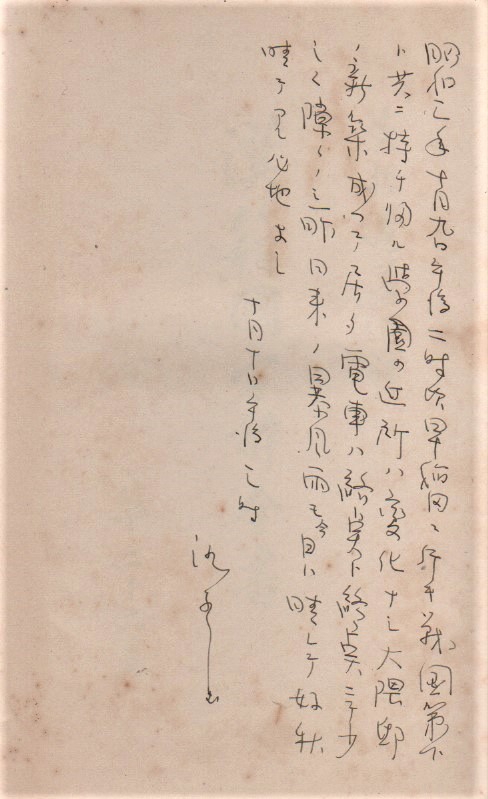 昭和 年十月九日午後二時頃早稲田ニ行キ戦国策下
ト共ニ持チ帰ル学園の近所ハ変化ナシ大隈邸
ノ新築成ツテ居り電車ハ終点ト終点ニテ少
シク隙クノミ昨日来ノ暴風雨モ今日ハ晴レテ好秋
晴 心地よし
十月十日午後 時